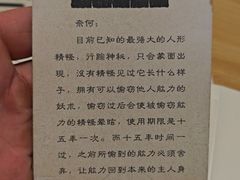 奈何：
目前已知的最強大的人形
精怪，行蹤神秘，只會蒙面出
現，沒有精怪見过它長什么样
子，拥有可以偷窃他人能力的
妖术，偷窃过后会使被偷窃能力
的精怪晕眩，使用期限是十
五年一次。而十五年時间一
过，之前所偷到的能力必须舍
弃，让能力回到本来的主人身